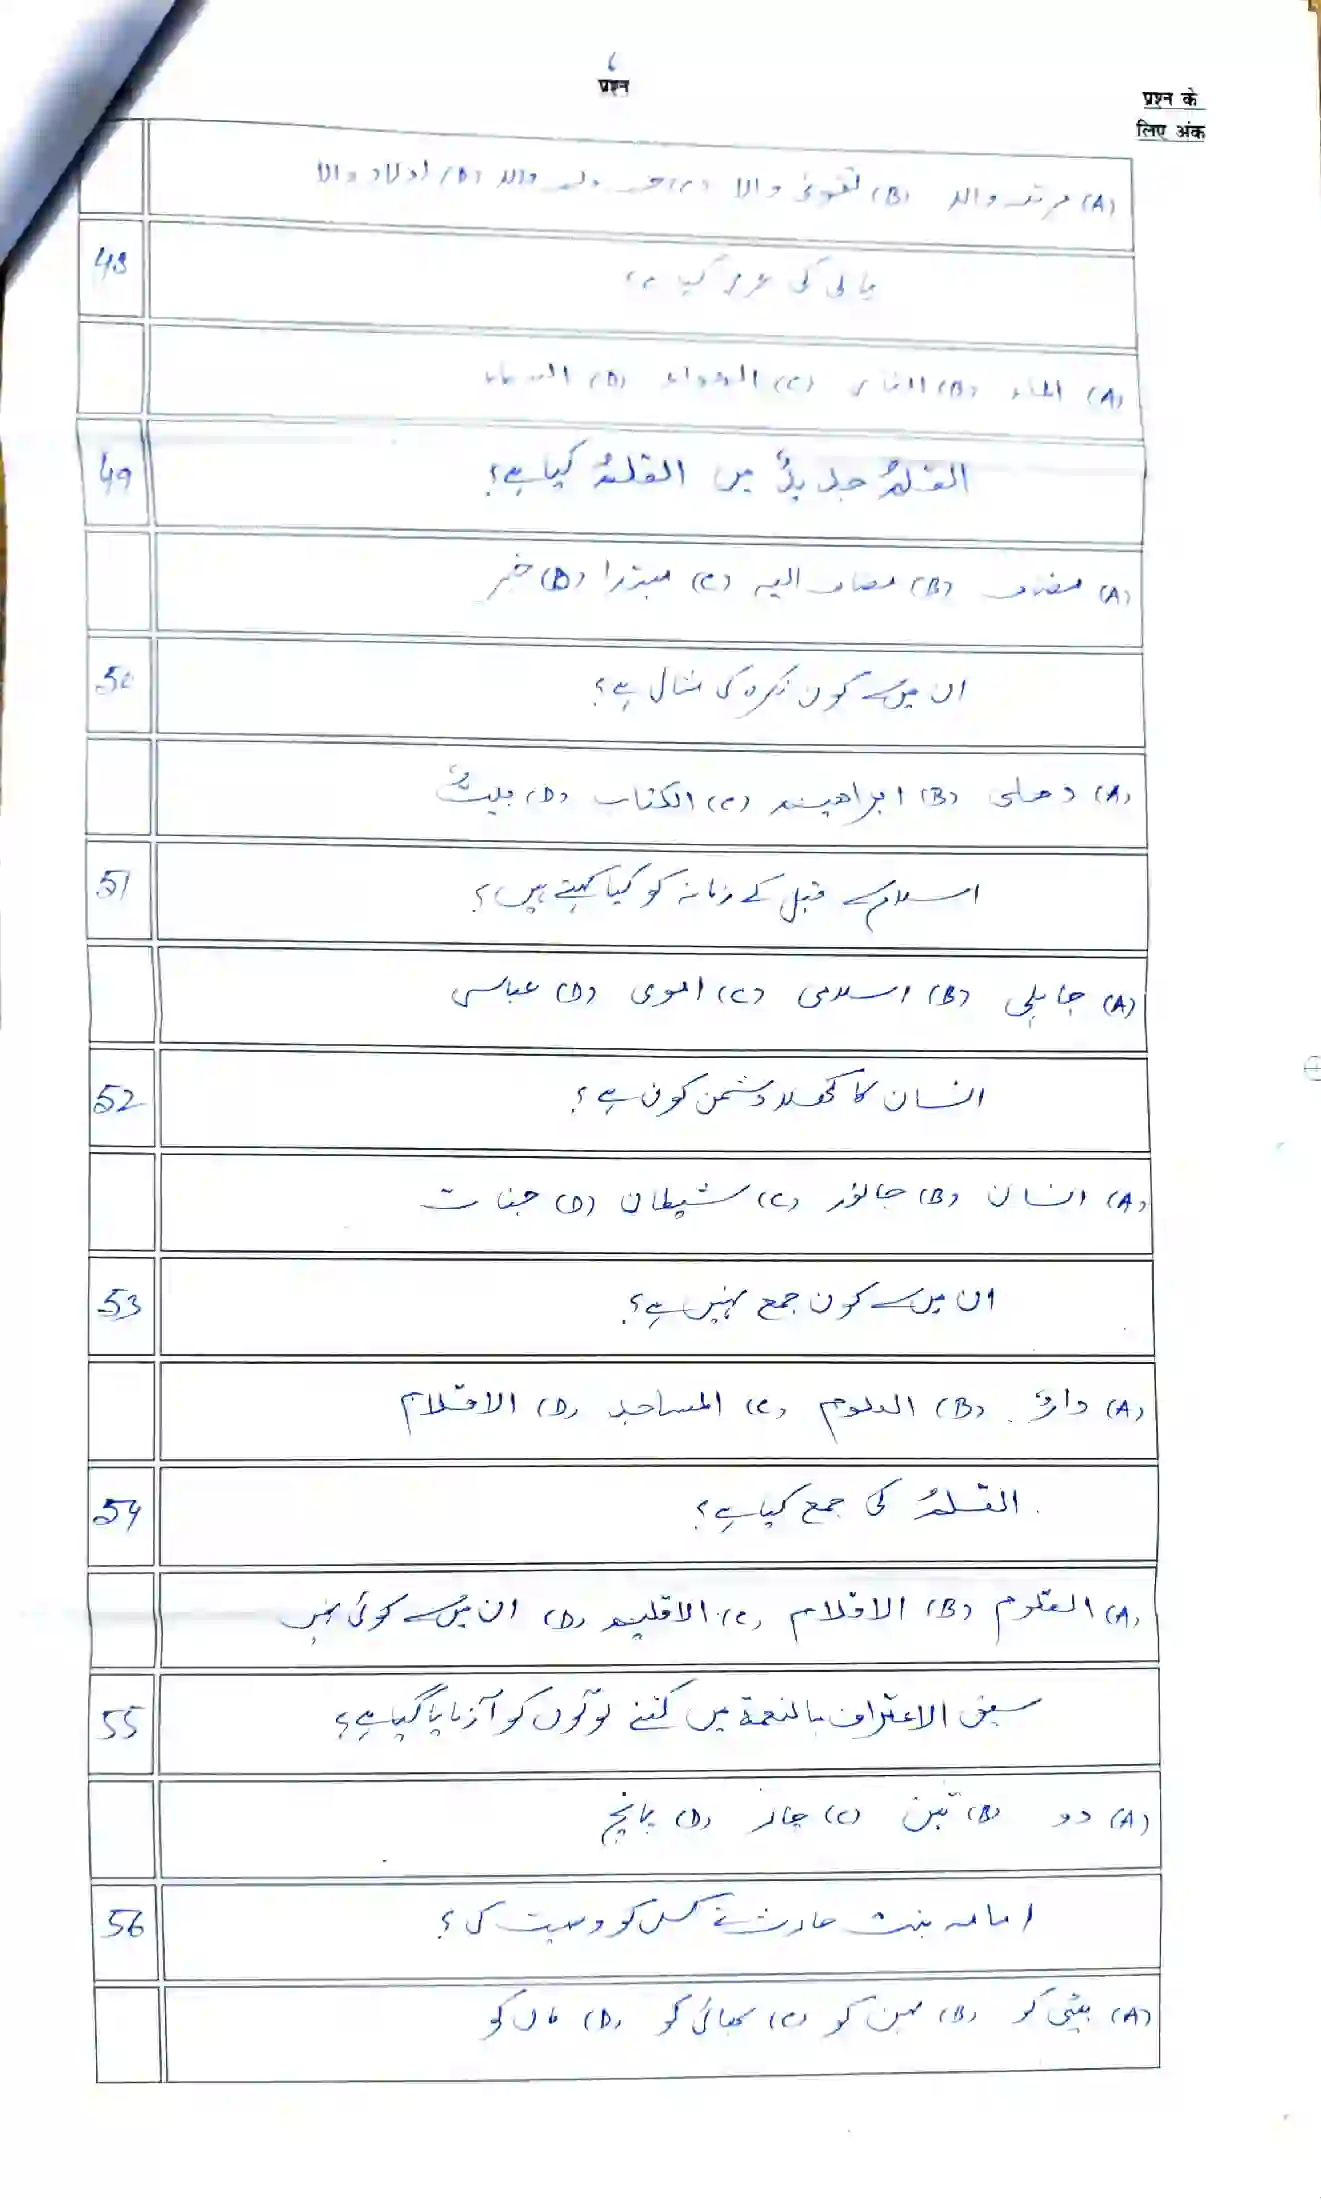 6
प्रश्न
प्रश्न के
लिए अंक
(A) مرتبہ والد (B) تقویٰ والا (C) (D) اولاد والا
48 پانی کی عربی کیا ہے؟
(A) الماء (B) النار (C) الھواء (D) السماء
49 القلمُ جدیدٌ میں القلمُ کیا ہے؟
(A) مضاف (B) مضاف الیہ (C) مبتدا (D) خبر
50 ان میں سے کون نکرہ کی مثال ہے؟
(A) دھلی (B) ابراھیم (C) الکتاب (D) بیتٌ
51 اسلام سے قبل کے زمانہ کو کیا کہتے ہیں؟
(A) جاہلی (B) اسلامی (C) اموی (D) عباسی
52 انسان کا کھلا دشمن کون ہے؟
(A) انسان (B) جانور (C) شیطان (D) جنات
53 ان میں سے کون جمع نہیں ہے؟
(A) دارٌ (B) العلوم (C) المساجد (D) الاقلام
54 القلمُ کی جمع کیا ہے؟
(A) القلوم (B) الاقلام (C) الاقلیم (D) ان میں سے کوئی نہیں
55 سبق الاعتراف بالنعمۃ میں کتنے لوگوں کو آزمایا گیا ہے؟
(A) دو (B) تین (C) چار (D) پانچ
56 امامہ بنت حارث نے کس کو وصیت کی؟
(A) بیٹی کو (B) بہن کو (C) بھائی کو (D) ماں کو